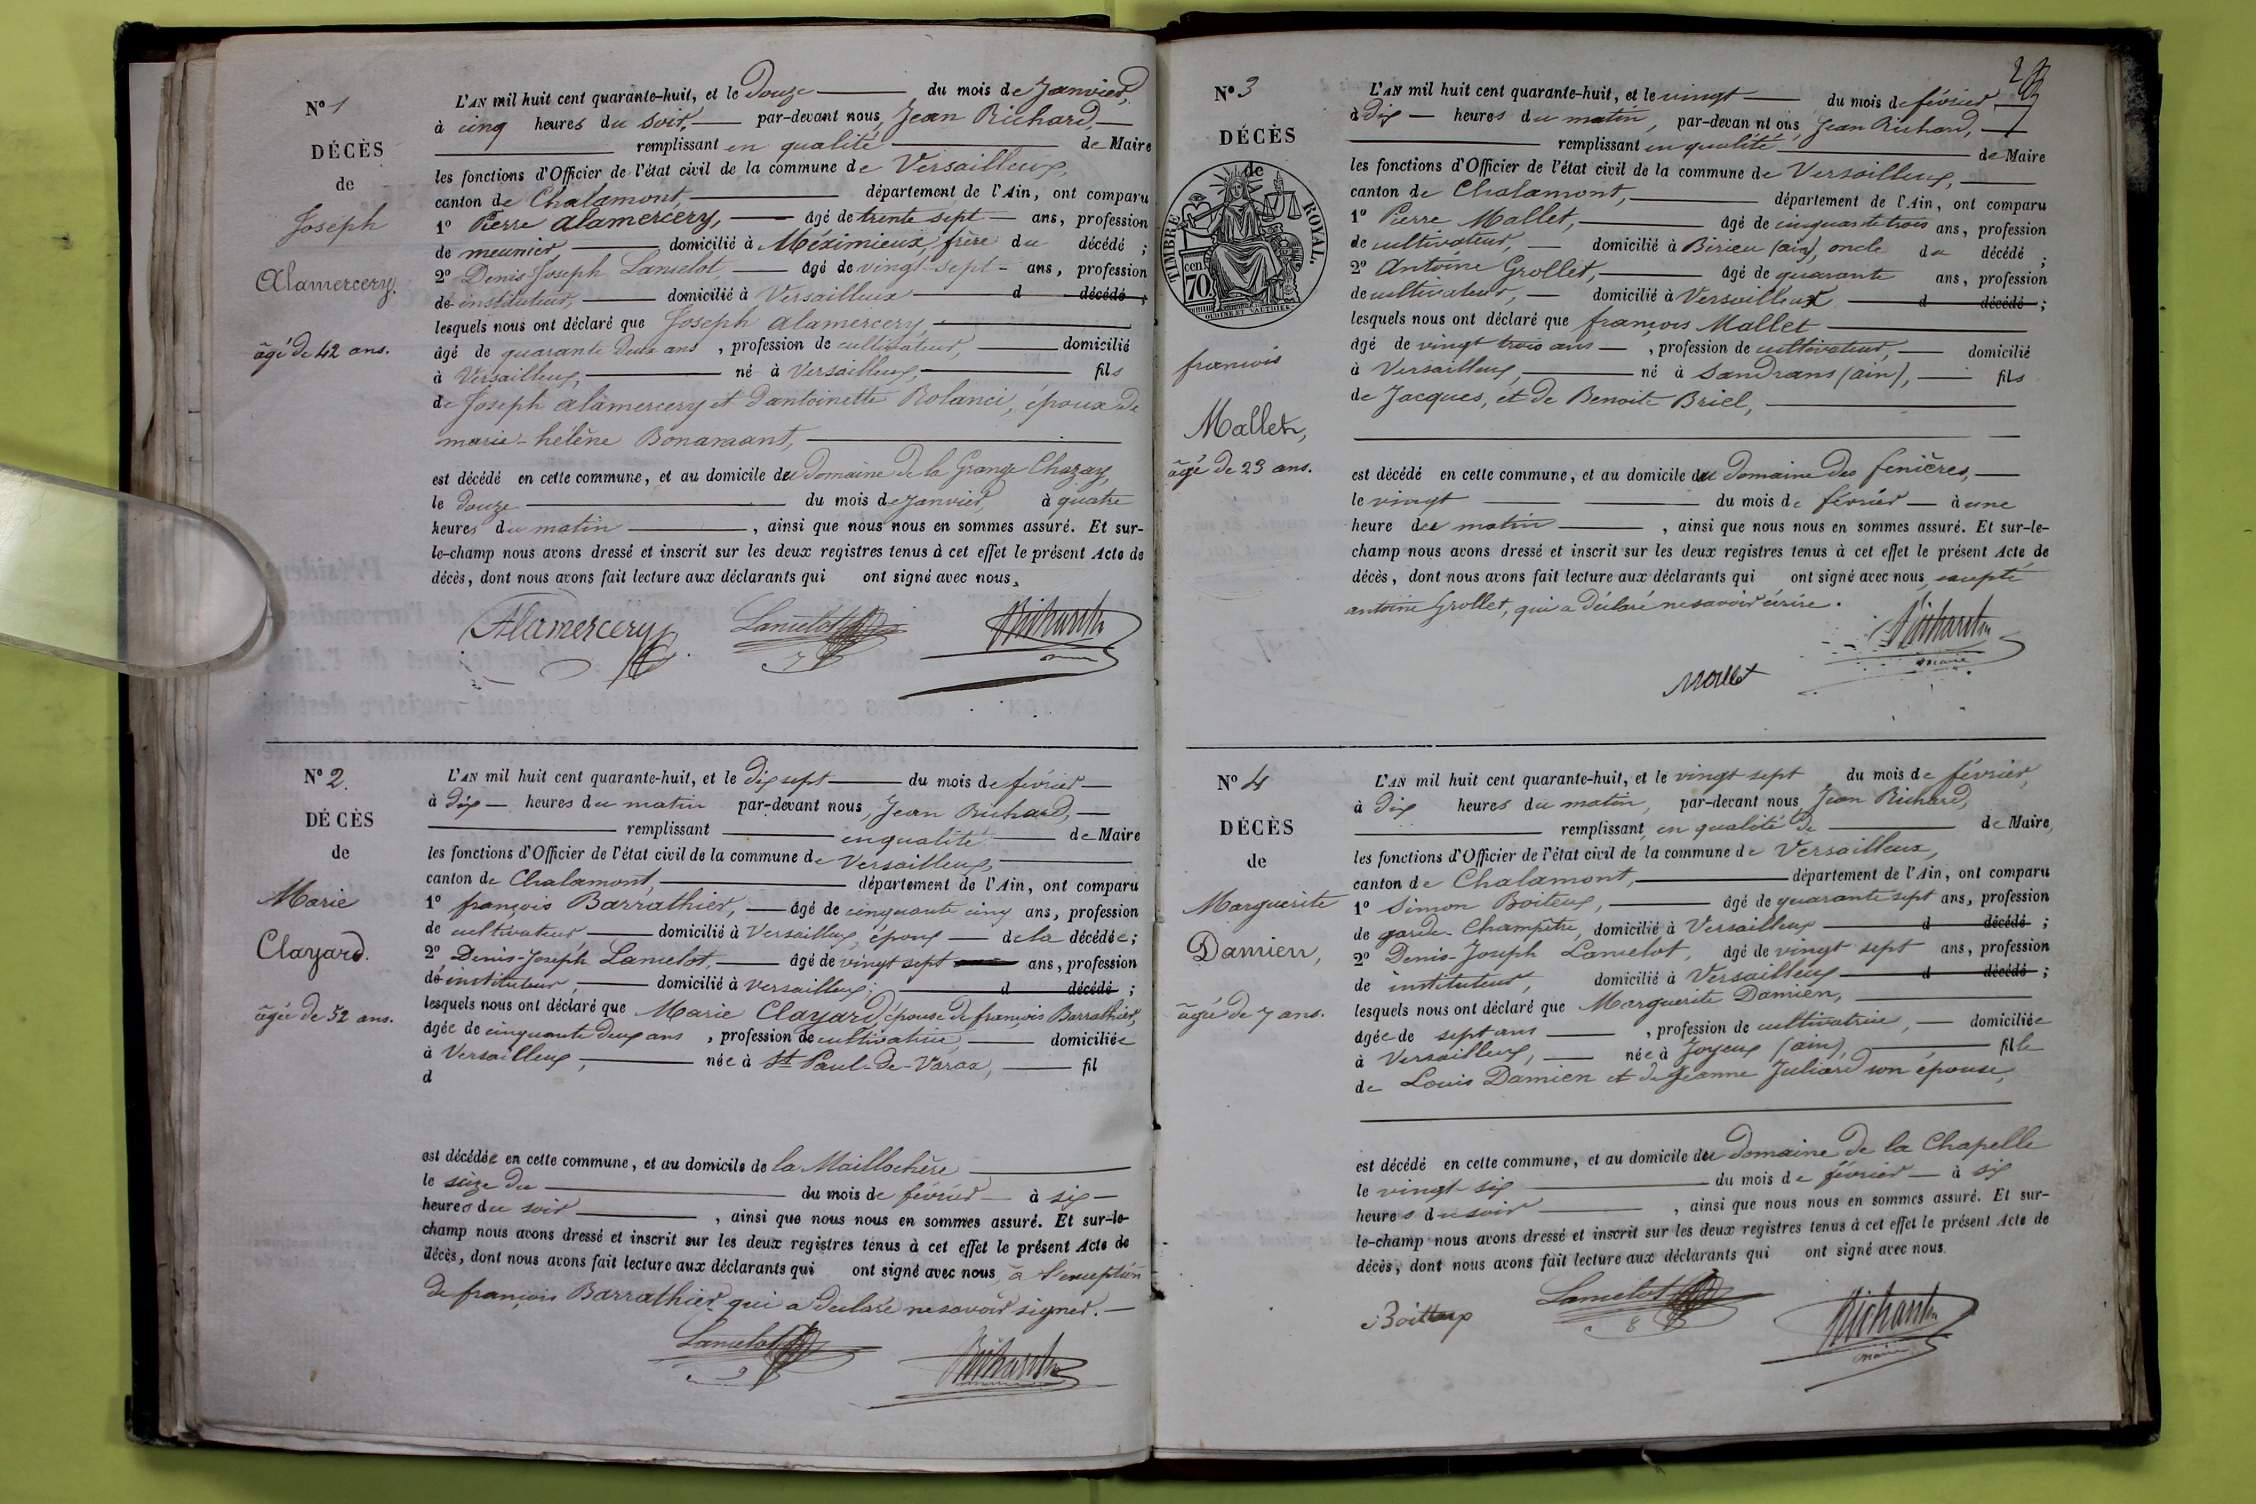 N° 1
DÉCÈS
de
Joseph
Alamercery.
âgé de 42 ans.
L'AN mil huit cent quarante-huit, et le Douze du mois de Janvier,
à cinq heures du soir, par-devant nous, Jean Richard,
remplissant en qualité de Maire
les fonctions d'Officier de l'état civil de la commune de Versailleux,
canton de Chalamont, département de l'Ain, ont comparu
1° Pierre Alamercery, âgé de trente sept ans, profession
de meunier domicilié à Méximieux, frère du décédé ;
2° Denis-Joseph Lancelot âgé de vingt-sept ans, profession
de instituteur, domicilié à Versailleux d décédé ;
lesquels nous ont déclaré que Joseph alamercery,
âgé de quarante deux ans , profession de cultivateur, domicilié
à Versailleux, né à Versailleux, fils
de Joseph alamercery et d'antoinette Rolanci, époux de
marie-hélène Bonamant,
est décédé en cette commune, et au domicile du domaine de la Grange Chazay,
le douze du mois de janvier, à quatre
heures du matin , ainsi que nous nous en sommes assuré. Et sur-
le-champ nous avons dressé et inscrit sur les deux registres tenus à cet effet le présent Acte de
décès, dont nous avons fait lecture aux déclarants qui ont signé avec nous.
Alamercery Lancelot Richard
N° 2.
DÉCÈS
de
Marie
Clayard.
âgée de 52 ans.
L'AN mil huit cent quarante-huit, et le dix sept du mois de février
à dix heures du matin par-devant nous, Jean Richard,
remplissant en qualité de Maire
les fonctions d'Officier de l'état civil de la commune de Versailleux,
canton de Chalamont, département de l'Ain, ont comparu
1° françois Barrathier, âgé de cinquante cinq ans, profession
de cultivateur domicilié à Versailleux, époux de la décédée ;
2° Denis-Joseph Lancelot, âgé de vingt sept ans, profession
de instituteur, domicilié à Versailleux, d décédé ;
lesquels nous ont déclaré que Marie Clayard, épouse de françois Barrathier,
âgée de cinquante deux ans , profession de cultivatrice, domiciliée
à Versailleux, née à St Paul-de-Varax, fil
d
est décédée en cette commune, et au domicile de la Maillochère
le seize du du mois de février à six
heures du soir , ainsi que nous nous en sommes assuré. Et sur-le-
champ nous avons dressé et inscrit sur les deux registres tenus à cet effet le présent Acte de
décès, dont nous avons fait lecture aux déclarants qui ont signé avec nous à l'exception
de françois Barrathier qui a déclaré ne savoir signer.
Lancelot Richard
N° 3
DÉCÈS
de
TIMBRE ROYAL.
70 cen.
OUDINÉ ET VAUTHIER
françois
Mallet,
âgé de 23 ans.
L'AN mil huit cent quarante-huit, et le vingt du mois de février
à dix heures du matin, par-devan nt ous, Jean Richard,
remplissant en qualité de Maire
les fonctions d'Officier de l'état civil de la commune de Versailleux,
canton de Chalamont, département de l'Ain, ont comparu
1° Pierre Mallet, âgé de cinquante trois ans, profession
de cultivateur, domicilié à Birieu (ain), oncle du décédé ;
2° Antoine Grollet, âgé de quarante ans, profession
de cultivateur, domicilié à Versailleux d décédé ;
lesquels nous ont déclaré que françois Mallet
âgé de vingt trois ans , profession de cultivateur, domicilié
à Versailleux, né à Sandrans (ain), fils
de Jacques, et de Benoite Briel,
est décédé en cette commune, et au domicile du domaine des fenières,
le vingt du mois de février à une
heure du matin , ainsi que nous nous en sommes assuré. Et sur-le-
champ nous avons dressé et inscrit sur les deux registres tenus à cet effet le présent Acte de
décès, dont nous avons fait lecture aux déclarants qui ont signé avec nous, excepté
antoine Grollet, qui a déclaré ne savoir écrire.
Richard
maire
Mallet
N° 4
DÉCÈS
de
Marguerite
Damien,
âgée de 7 ans.
L'AN mil huit cent quarante-huit, et le vingt sept du mois de février,
à dix heures du matin, par-devant nous, Jean Richard,
remplissant, en qualité de de Maire,
les fonctions d'Officier de l'état civil de la commune de Versailleux,
canton de Chalamont, département de l'Ain, ont comparu
1° Simon Boiteux, âgé de quarante sept ans, profession
de garde-Champêtre, domicilié à Versailleux d décédé ;
2° Denis-Joseph Lancelot, âgé de vingt sept ans, profession
de instituteur, domicilié à Versailleux d décédé ;
lesquels nous ont déclaré que Marguerite Damien,
âgée de sept ans , profession de cultivatrice, domiciliée
à Versailleux, née à Joyeux (ain), fille
de Louis Damien et de Jeanne Juliard son épouse,
est décédé en cette commune, et au domicile du domaine de la Chapelle
le vingt six du mois de février à six
heures du soir , ainsi que nous nous en sommes assuré. Et sur-
le-champ nous avons dressé et inscrit sur les deux registres tenus à cet effet le présent Acte de
décès, dont nous avons fait lecture aux déclarants qui ont signé avec nous.
Boiteux Lancelot Richard
maire